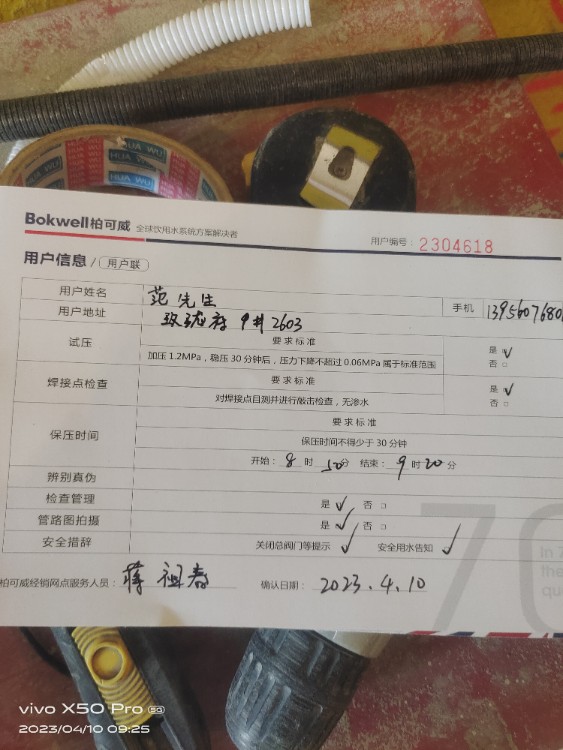 HUA WU HUA WU
HUA WU HUA WU
Bokwell柏可威 全球饮用水系统方案解决者
用户编号：2304618
用户信息 / 用户联
用户姓名 范先生 手机 1395607680
用户地址 玖珑府 9#2603
试压 要求标准 是 √
加压 1.2MPa，稳压 30 分钟后，压力下降不超过 0.06MPa 属于标准范围 否 □
焊接点检查 要求标准 是 √
对焊接点目测并进行敲击检查，无渗水 否 □
保压时间 要求标准
保压时间不得少于 30 分钟
开始：8 时 50分 结束：9 时 20 分
辨别真伪
检查管理 是 √ 否 □
管路图拍摄 是 √ 否 □
安全措辞 关闭总阀门等提示 √ 安全用水告知 √
70
In 7
the
qu
柏可威经销网点服务人员：蒋祖春 确认日期：2023.4.10
vivo X50 Pro 5G
2023/04/10 09:25